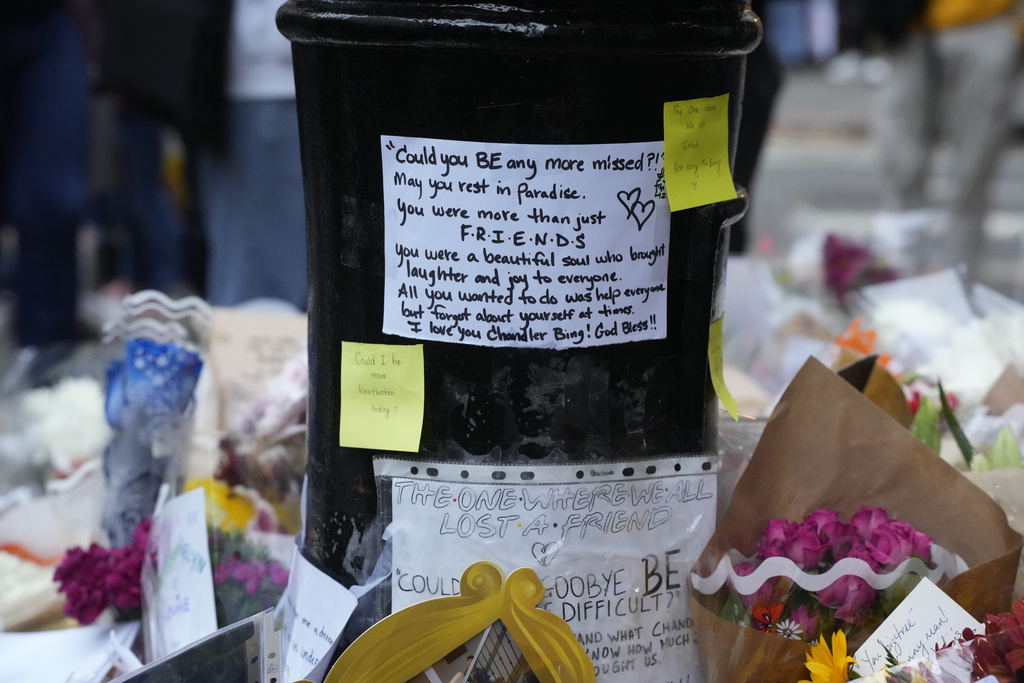 "Could you BE any more missed?!"
May you rest in Paradise.
You were more than just
F·R·I·E·N·D·S
You were a beautiful soul who brought
laughter and joy to everyone.
All you wanted to do was help everyone
but forgot about yourself at times.
I love you Chandler Bing! God Bless!!
The One Where
We all
Cried
Could I be
more
heartbroken
today?
THE·ONE·WHERE·WE·ALL
LOST·A·FRIEND
"COULD
GOODBYE BE
DIFFICULT?"
AND WHAT CHAND
KNOW HOW MUCH
OUGHT US.